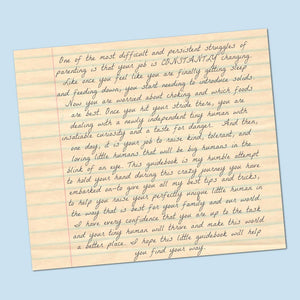 One of the most difficult and persistent struggles of
parenting is that your job is CONSTANTLY changing.
Like once you feel like you are finally getting sleep
and feeding down, you start needing to introduce solids.
Now you are worried about choking and which foods
are best. Once you hit your stride there, you are
dealing with a newly independent tiny human with
insatiable curiosity and a taste for danger. And then,
one day, it is your job to raise kind, tolerant, and
loving little humans that will be big humans in the
blink of an eye. This guidebook is my humble attempt
to hold your hand during this crazy journey you have
embarked on—to give you all my best tips and tricks,
to help you raise your perfectly unique little human in
the way that is best for your family and our world.
I have every confidence that you are up to the task
and your tiny human will thrive and make this world
a better place. I hope this little guidebook will help
you find your way.